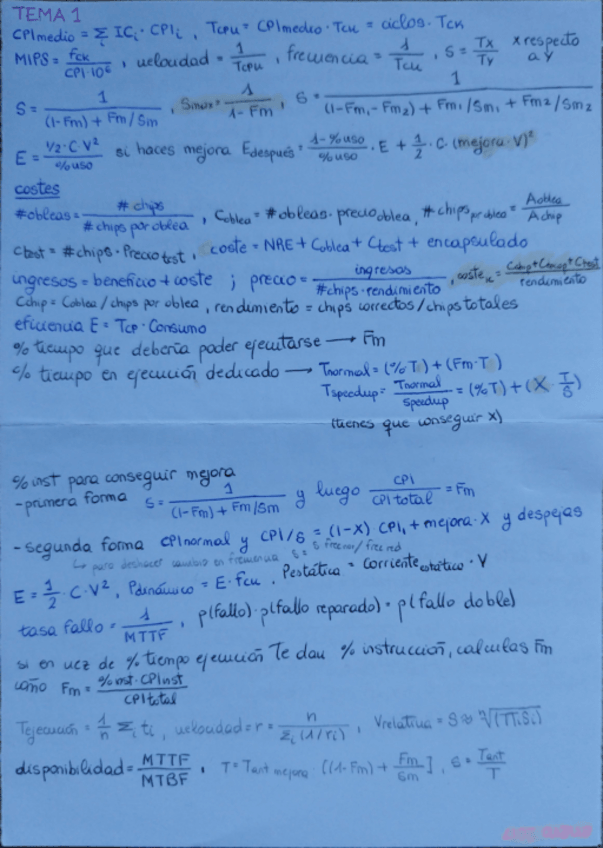 TEMA 1
CPImedio = Σi ICi · CPIi , Tcpu = CPImedio · Tck = ciclos · Tck
MIPS = fck / CPI·10⁶ , velocidad = 1 / Tcpu , frecuencia = 1 / Tck , S = Tx / Ty x respecto a y
S = 1 / (1-Fm) + Fm/Sm , Smax = 1 / 1-Fm , S = 1 / (1-Fm1-Fm2) + Fm1/Sm1 + Fm2/Sm2
E = 1/2·C·V² / %uso si haces mejora Edespués = 1-%uso / %uso · E + 1/2 · C·(mejora·V)²
costes
#obleas = #chips / #chips por oblea , Coblea = #obleas · precio oblea, #chips por oblea = Aoblea / Achip
Ctest = #chips · Precio test, coste = NRE + Coblea + Ctest + encapsulado
ingresos = beneficio + coste ; precio = ingresos / #chips·rendimiento , coste = Cchip + Cencap + Ctest / rendimiento
Cchip = Coblea / chips por oblea, rendimiento = chips correctos / chips totales
eficiencia E = Tcp · Consumo
% tiempo que debería poder ejecutarse → Fm
% tiempo en ejecución dedicado → Tnormal = (%T) + (Fm·T)
Tspeedup = Tnormal / Speedup = (%T) + (X · T/S)
(tienes que conseguir X)
% inst para conseguir mejora
- primera forma S = 1 / (1-Fm) + Fm/Sm y luego CPI / CPI total = Fm
- segunda forma CPI normal y CPI/S = (1-X) CPI1 + mejora · X y despejas
↳ para deshacer cambio en frecuencia S = S frec nor / frec red
E = 1/2 · C·V², Pdinámico = E·fck , Pestática = Corriente estática · V
tasa fallo = 1 / MTTF , p(fallo)·p(fallo reparado) = p(fallo doble)
si en vez de % tiempo ejecución te dan % instrucción, calculas Fm
como Fm = %inst·CPIinst / CPI total
Tejecución = 1/n Σi ti , velocidad = r = n / Σi (1/ri) , Vrelativa = S ≈ ⁿ√(ΠiSi)
disponibilidad = MTTF / MTBF , T = Tant mejora · ((1-Fm) + Fm/Sm] , S = Tant / T